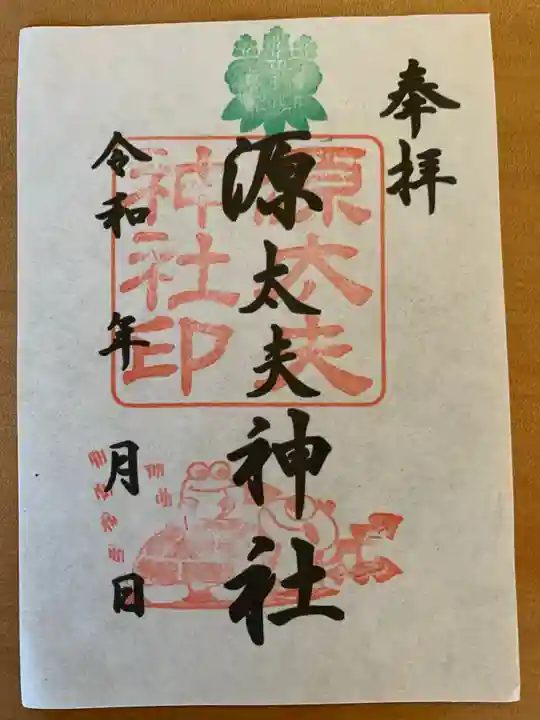 奉拝
源太夫神社
源太夫
神社印
令和 年 月 日